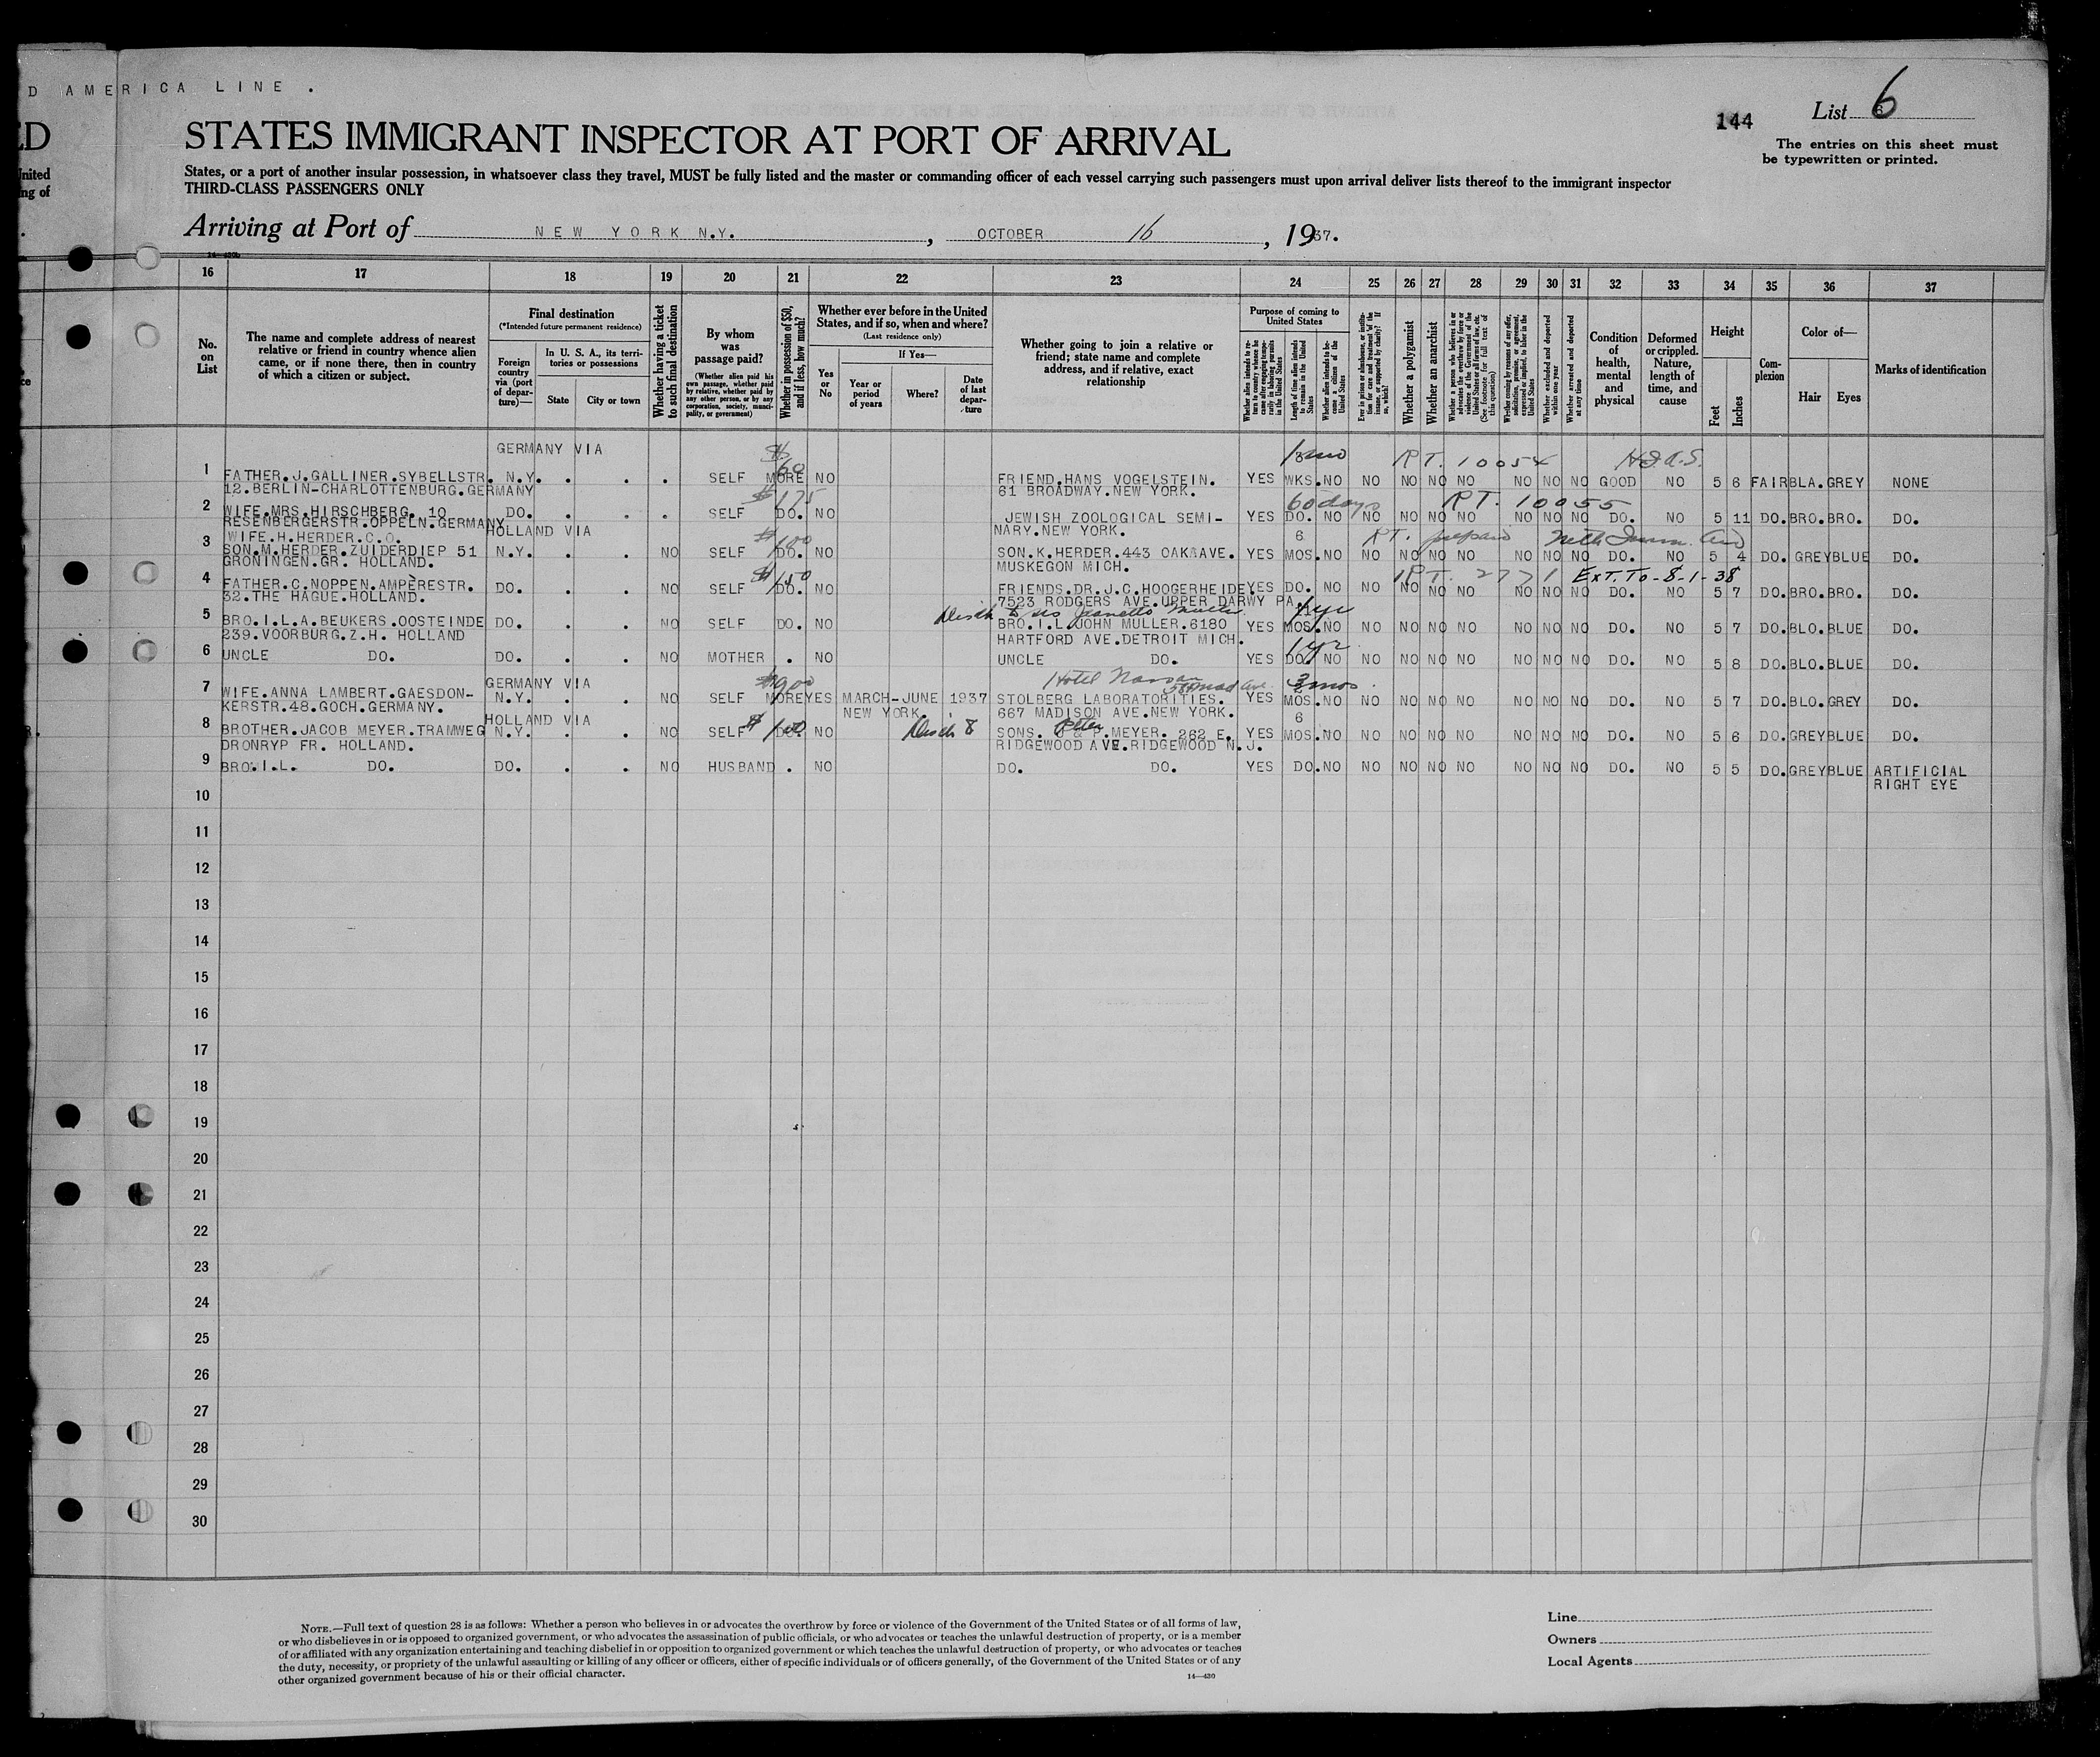 D AMERICA LINE .
144
List 6
ED
STATES IMMIGRANT INSPECTOR AT PORT OF ARRIVAL
The entries on this sheet must
be typewritten or printed.
States, or a port of another insular possession, in whatsoever class they travel, MUST be fully listed and the master or commanding officer of each vessel carrying such passengers must upon arrival deliver lists thereof to the immigrant inspector
THIRD-CLASS PASSENGERS ONLY
Arriving at Port of NEW YORK N.Y. , OCTOBER 16 , 1937.
16 17 18 19 20 21 22 23 24 25 26 27 28 29 30 31 32 33 34 35 36 37
No. on List
The name and complete address of nearest
relative or friend in country whence alien
came, or if none there, then in country
of which a citizen or subject.
Final destination
(*Intended future permanent residence)
Foreign country via (port of departure)—
In U. S. A., its territories or possessions
State
City or town
Whether having a ticket to such final destination
By whom was passage paid?
(Whether alien paid his own passage, whether paid by relative, whether paid by any other person, or by any corporation, society, municipality, or government)
Whether in possession of $50, and if less, how much?
Whether ever before in the United
States, and if so, when and where?
(Last residence only)
Yes or No
If Yes—
Year or period of years
Where?
Date of last departure
Whether going to join a relative or
friend; state name and complete
address, and if relative, exact
relationship
Purpose of coming to United States
Whether alien intends to return to country whence he came after engaging temporarily in laboring pursuits in the United States
Length of time alien intends to remain in the United States
Whether alien intends to become a citizen of the United States
Whether a polygamist
Whether an anarchist
Whether excluded and deported within one year
Whether arrested and deported at any time
Condition of health, mental and physical
Deformed or crippled. Nature, length of time, and cause
Height
Feet
Inches
Complexion
Color of—
Hair
Eyes
Marks of identification
GERMANY VIA
1 FATHER.J.GALLINER.SYBELLSTR. N.Y. . . . SELF MORE NO FRIEND.HANS VOGELSTEIN. YES WKS. NO NO NO NO NO NO NO NO GOOD NO 5 6 FAIR BLA. GREY NONE
12.BERLIN-CHARLOTTENBURG.GERMANY 61 BROADWAY.NEW YORK.
RT. 10054
$175 60 days RT. 10055
2 WIFE.MRS.HIRSCHBERG. 10 DO. . . . SELF DO. NO JEWISH ZOOLOGICAL SEMI- YES DO. NO NO NO NO NO NO NO NO DO. NO 5 11 DO. BRO. BRO. DO.
RESENBERGERSTR.OPPELN.GERMANY NARY.NEW YORK.
HOLLAND VIA
3 WIFE.H.HERDER.C.O. $100 6 RT. prepaid
SON.M.HERDER.ZUIDERDIEP 51 N.Y. . . NO SELF DO. NO SON.K.HERDER.443 OAK AVE. YES MOS. NO NO NO NO NO NO NO NO DO. NO 5 4 DO. GREY BLUE DO.
GRONINGEN.GR. HOLLAND. MUSKEGON MICH.
$150 RT. 2771 EXT. TO-8-1-38
4 FATHER.C.NOPPEN.AMPÈRESTR. DO. . . NO SELF DO. NO FRIENDS.DR.J.C.HOOGERHEIDE YES DO. NO NO NO NO NO NO NO NO DO. NO 5 7 DO. BRO. BRO. DO.
32.THE HAGUE.HOLLAND. 7523 RODGERS AVE.UPPER DARWY PA.
1 yr
5 BRO.I.L.A.BEUKERS.OOSTEINDE DO. . . NO SELF DO. NO BRO.I.L.JOHN MULLER.6180 YES MOS. NO NO NO NO NO NO NO NO DO. NO 5 7 DO. BLO. BLUE DO.
239.VOORBURG.Z.H. HOLLAND HARTFORD AVE.DETROIT MICH.
1 yr
6 UNCLE DO. DO. . . NO MOTHER . NO UNCLE DO. YES DO. NO NO NO NO NO NO NO NO DO. NO 5 8 DO. BLO. BLUE DO.
GERMANY VIA $900 Hotel Nassau 3 mos
7 WIFE.ANNA LAMBERT.GAESDON- N.Y. . . NO SELF MORE YES MARCH-JUNE 1937 STOLBERG LABORATORITIES. YES MOS. NO NO NO NO NO NO NO NO DO. NO 5 7 DO. BLO. GREY DO.
KERSTR.48.GOCH.GERMANY. NEW YORK. 667 MADISON AVE.NEW YORK.
HOLLAND VIA 6
8 BROTHER.JACOB MEYER.TRAMWEG N.Y. . . NO SELF $100 DO. NO SONS. Peter & P.MEYER. 262 E. YES MOS. NO NO NO NO NO NO NO NO DO. NO 5 6 DO. GREY BLUE DO.
DRONRYP FR. HOLLAND. RIDGEWOOD AVE.RIDGEWOOD N.J.
9 BRO.I.L. DO. DO. . . NO HUSBAND . NO DO. DO. YES DO. NO NO NO NO NO NO NO NO DO. NO 5 5 DO. GREY BLUE ARTIFICIAL
RIGHT EYE
10
11
12
13
14
15
16
17
18
19
20
21
22
23
24
25
26
27
28
29
30
NOTE.—Full text of question 28 is as follows: Whether a person who believes in or advocates the overthrow by force or violence of the Government of the United States or of all forms of law,
or who disbelieves in or is opposed to organized government, or who advocates the assassination of public officials, or who advocates or teaches the unlawful destruction of property, or is a member
of or affiliated with any organization entertaining and teaching disbelief in or opposition to organized government or which teaches the unlawful destruction of property, or who advocates or teaches
the duty, necessity, or propriety of the unlawful assaulting or killing of any officer or officers, either of specific individuals or of officers generally, of the Government of the United States or of any
other organized government because of his or their official character.
14—430
Line
Owners
Local Agents